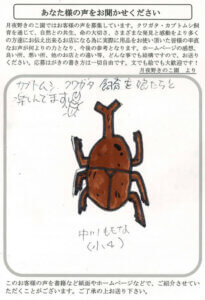 あなたの様の声をお聞かせください
月夜野きのこ園ではお客様の声を募集しています。クワガタ・カブトムシ飼
育を通じて、自然との共生、命の大切さ、さまざまな発見と感動をより多く
の方達にお伝え出来るお店になる為に実際に用品をお使い頂いた皆様の率直
なお声が何よりの力となり、今後の参考となります。ホームページの感想、
良い所、悪い所、他のお店との違い、どんな事でも結構ですので、お送りく
ださい。応募はがきの書き方は一切自由です。文でも絵でも大歓迎です！
月夜野きのこ園 より
カブトムシ クワガタ 飼育を娘たちと
楽しんでます
(小4)
このお客様の声を書籍など紙面やホームページなどで、ご紹介させてい
ただくことがございます。ご了承の上お送り下さい。